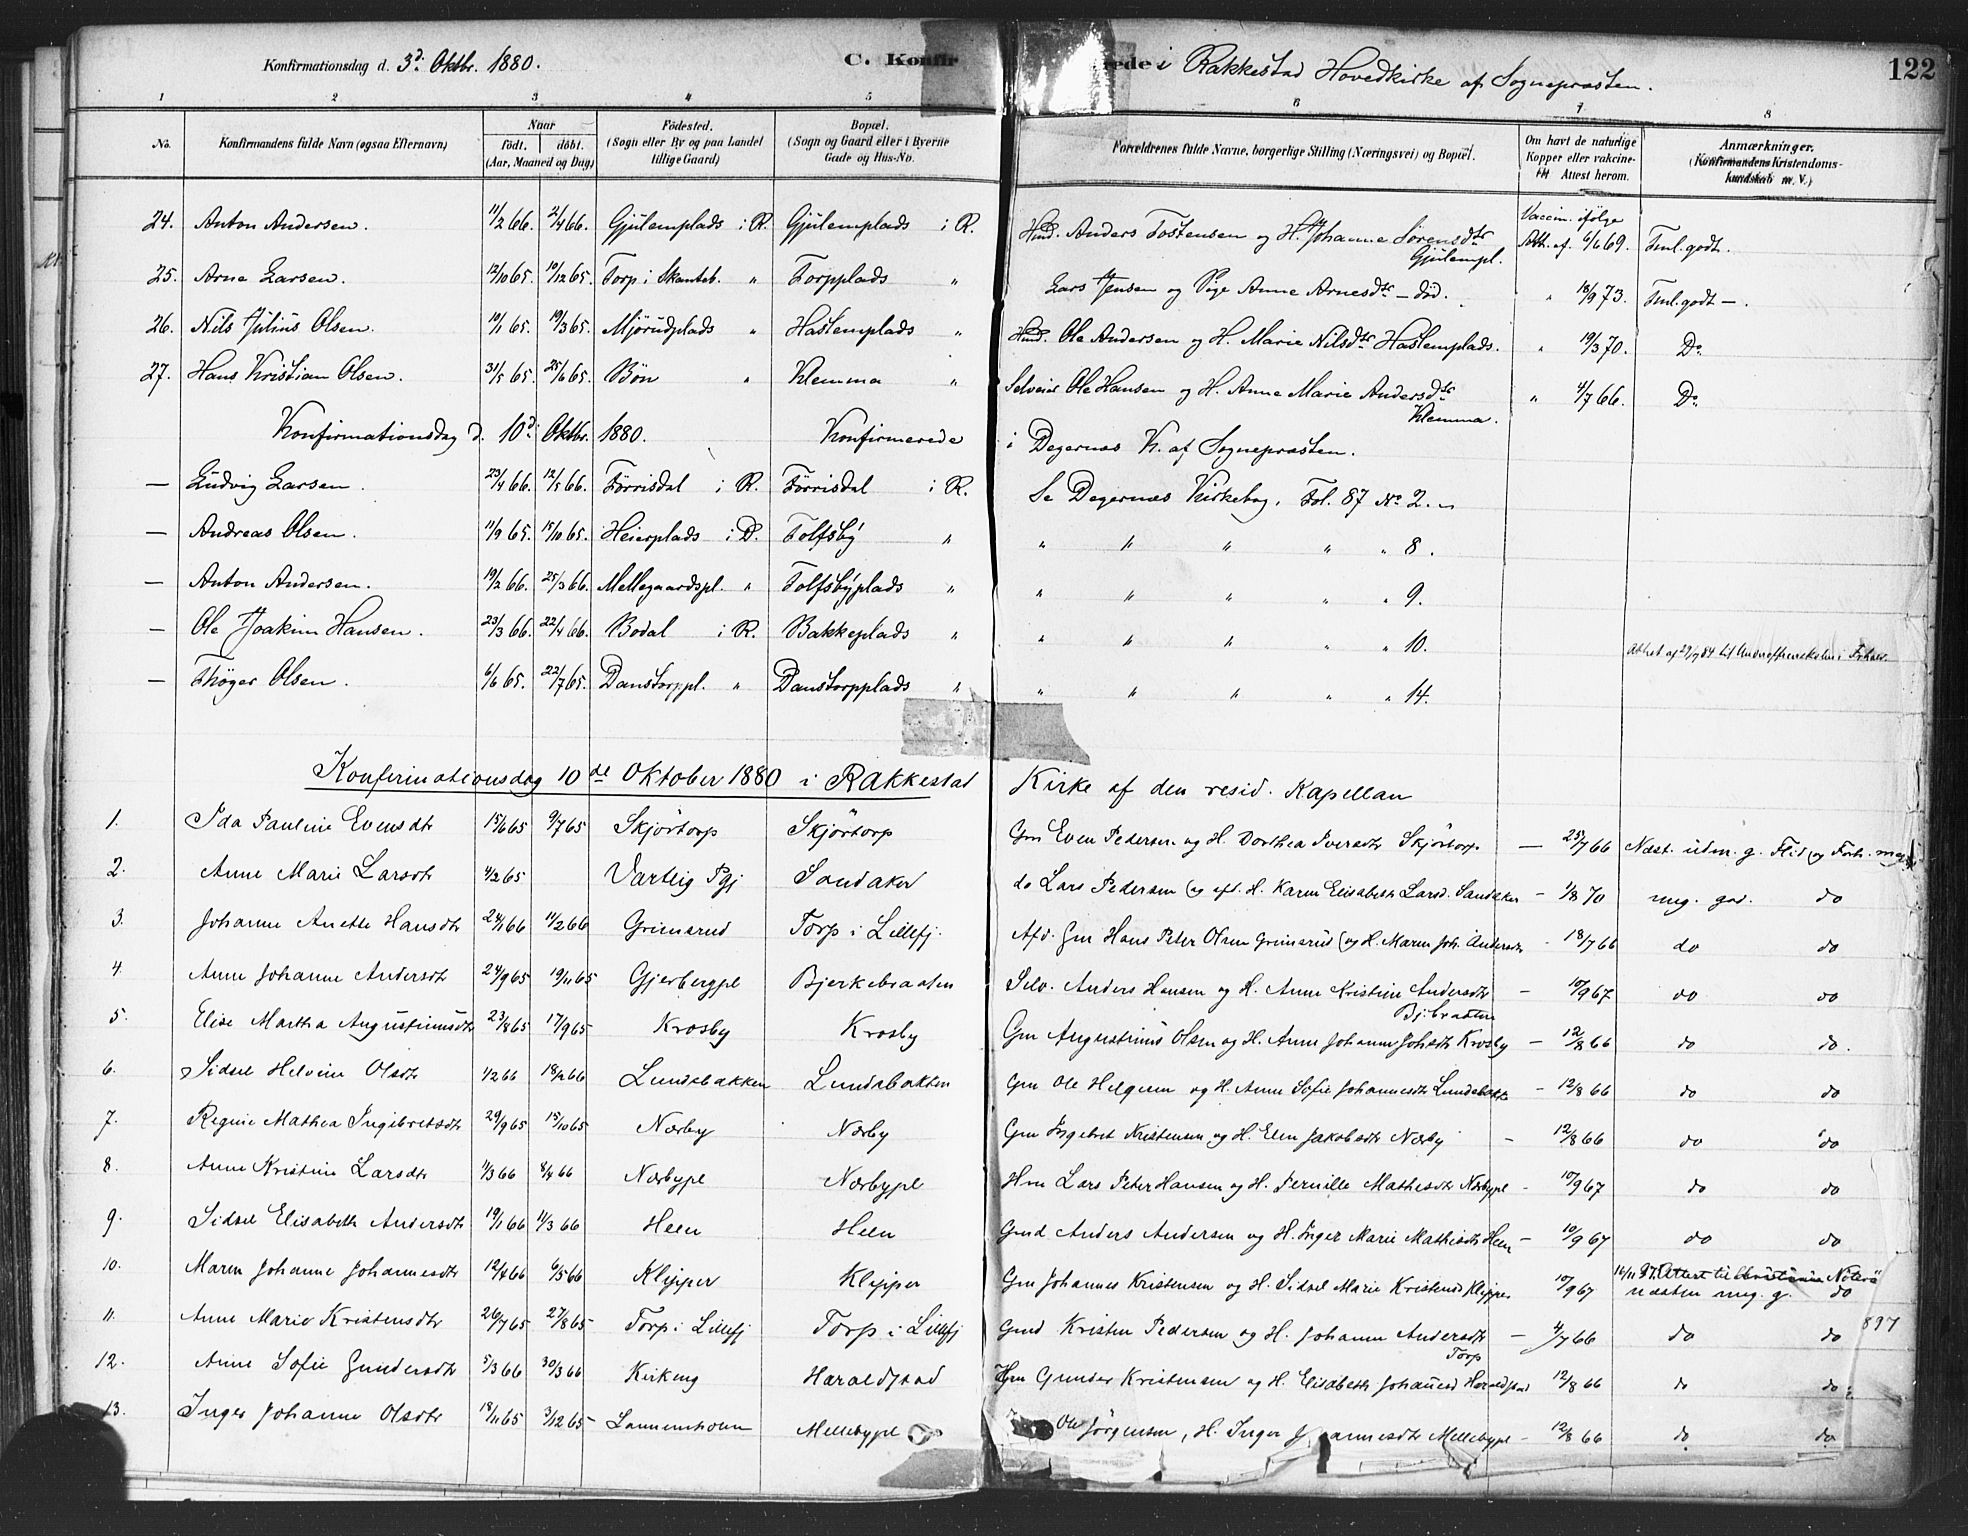 Konfirmationsdag d. 3d Oktbr. 1880. C. Konfir rede i Rakkestad Hovedkirke af Sognepræsten. 122
1 2 3 4 5 6 7 8
No. Konfirmandens fulde Navn (ogsaa Efternavn) Naar født. døbt. (Aar, Maaned og Dag) Fødested. (Sogn eller By og paa Landet tillige Gaard) Bopæl. (Sogn og Gaard eller i Byerne Gade og Hus-No. Forældrenes fulde Navne, borgerlige Stilling (Næringsvei) og Bopæl. Om havt de naturlige Kopper eller vaccineret Attest herom. Anmærkninger. (Konfirmandens Kristendomskundskab m. V.)
24. Anton Andersen. 11/2 66. 2/4 66. Gjulemplads i R. Gjulemplads i R. Husd. Anders Tostensen og H. Johanne Sørensdtr Gjulempl. Vaccin. ifølge Att. af 6/6 69. Tml. godt.
25. Arne Larsen. 12/10 65. 10/12 65. Torp i Skauteb. " Torpplads " Lars Jensen og Pige Anne Arnesdtr – død. " 18/9 73. Tml. godt –.
26. Nils Julius Olsen. 19/1 65. 19/3 65. Mjørudplads " Haslemplads " Husd. Ole Andersen og H. Marie Nilsdtr Haslemplads. " 19/3 70. Do
27. Hans Kristian Olsen. 31/5 65. 25/6 65. Bøn " Klemma " Selveier Ole Hansen og H. Anne Marie Andersdtr Klemma. " 4/7 66. Do
Konfirmationsdag d. 10d Oktbr. 1880. Konfirmerede i Degernæs K. af Sognepræsten.
— Ludvig Larsen. 23/4 66. 12/5 66. Førrisdal i R. Førrisdal i R. Se Degernæs Kirkebog, Fol. 87 No 2.
— Andreas Olsen. 11/9 65. 15/10 65. Heierplads i D. Tolfsby " " " " " " 8.
— Anton Andersen. 19/2 66. 25/3 66. Mellegaardspl. " Tolfsbyplads " " " " " " 9.
— Ole Joakim Hansen. 23/3 66. 22/4 66. Bodal i R. Bakkeplads " " " " " " 10.
— Thøger Olsen. 6/6 65. 22/7 65. Danstorppl. " Danstorpplads " " " " " " 14.
Konfirmationsdag 10de Oktober 1880 i Rakkestad Kirke af den resid. Kapellan
1. Ida Pauline Evensdtr 15/6 65 9/7 65 Skjørtorp Skjørtorp Gm Even Pedersen og H. Dorthea Iversdtr Skjørtorp — 25/7 66 Næst. udm. g. Flid og Forh. meg.
2. Anne Marie Larsdtr 4/2 65 Varteig Pgj Sandaker do Lars Pedersen (og afd. H. Karen Elisabeth Larsd. Sandaker – 1/8 70 mg. god. do
3. Johanne Anette Hansdtr 24/1 66 11/2 66 Grimsrud Torp i Lillefj. Afd. Gm Hans Peter Olsen Grimsrud (og H. Maren Joh. Andersdtr – 18/7 66 do do
4. Anne Johanne Andersdtr 24/9 65 19/11 65 Gjerbergpl Bjerkebraaten Selv. Anders Hansen og H. Anne Kristine Andersdtr Bj.braaten – 10/9 67 do do
5. Elise Martha Augustinusdtr 23/8 65 17/9 65 Krosby Krosby Gm Augustinus Olsen og H. Anne Johanne Johsdtr Krosby – 12/8 66 do do.
6. Sidsel Helvine Olsdtr 1/2 66 18/2 66 Lundebakken Lundebakken Gm Ole Helgesen og H. Anne Sofie Johannesdtr Lundebakke – 12/8 66 do do
7. Regine Mathea Ingebretsdtr 29/9 65 15/10 65 Nærby Nærby Gm Ingebret Kristensen og H. Elen Jakobsdtr Nærby – 12/8 66 do do
8. Anne Kristine Larsdtr 1/3 66 8/4 66 Nærbypl Nærbypl Hm Lars Peter Hansen og H. Pernille Mathisdtr Nærbypl – 10/9 67 do do
9. Sidsel Elisabeth Andersdtr 19/1 66 11/3 66 Heen Heen Gmd Anders Andersen og H. Inger Marie Mathisdtr Heen – 10/9 67 do do
10. Maren Johanne Johannesdtr 12/4 66 6/5 66 Klypper Klypper Gm Johannes Kristensen og H. Sidsel Marie Kristensd Klypper 10/9 67 næsten mg. g. do
11. Anne Marie Kristensdtr 26/7 65 27/8 65 Torp i Lillefj Torp i Lillefj Gmd Kristen Pedersen og H. Johanne Andersdtr Torp – 4/7 66 do do 897
12. Anne Sofie Gundersdtr 5/3 66 30/3 66 Kirkeng Haraldstad Gm Gunder Kristensen og H. Elisabeth Johannesd Haraldstad 12/8 66 do do
13. Inger Johanne Olsdtr 18/11 65 3/12 65 Mellebypl Ole Jørgensen, H. Inger Mellebypl – 12/8 66 do do